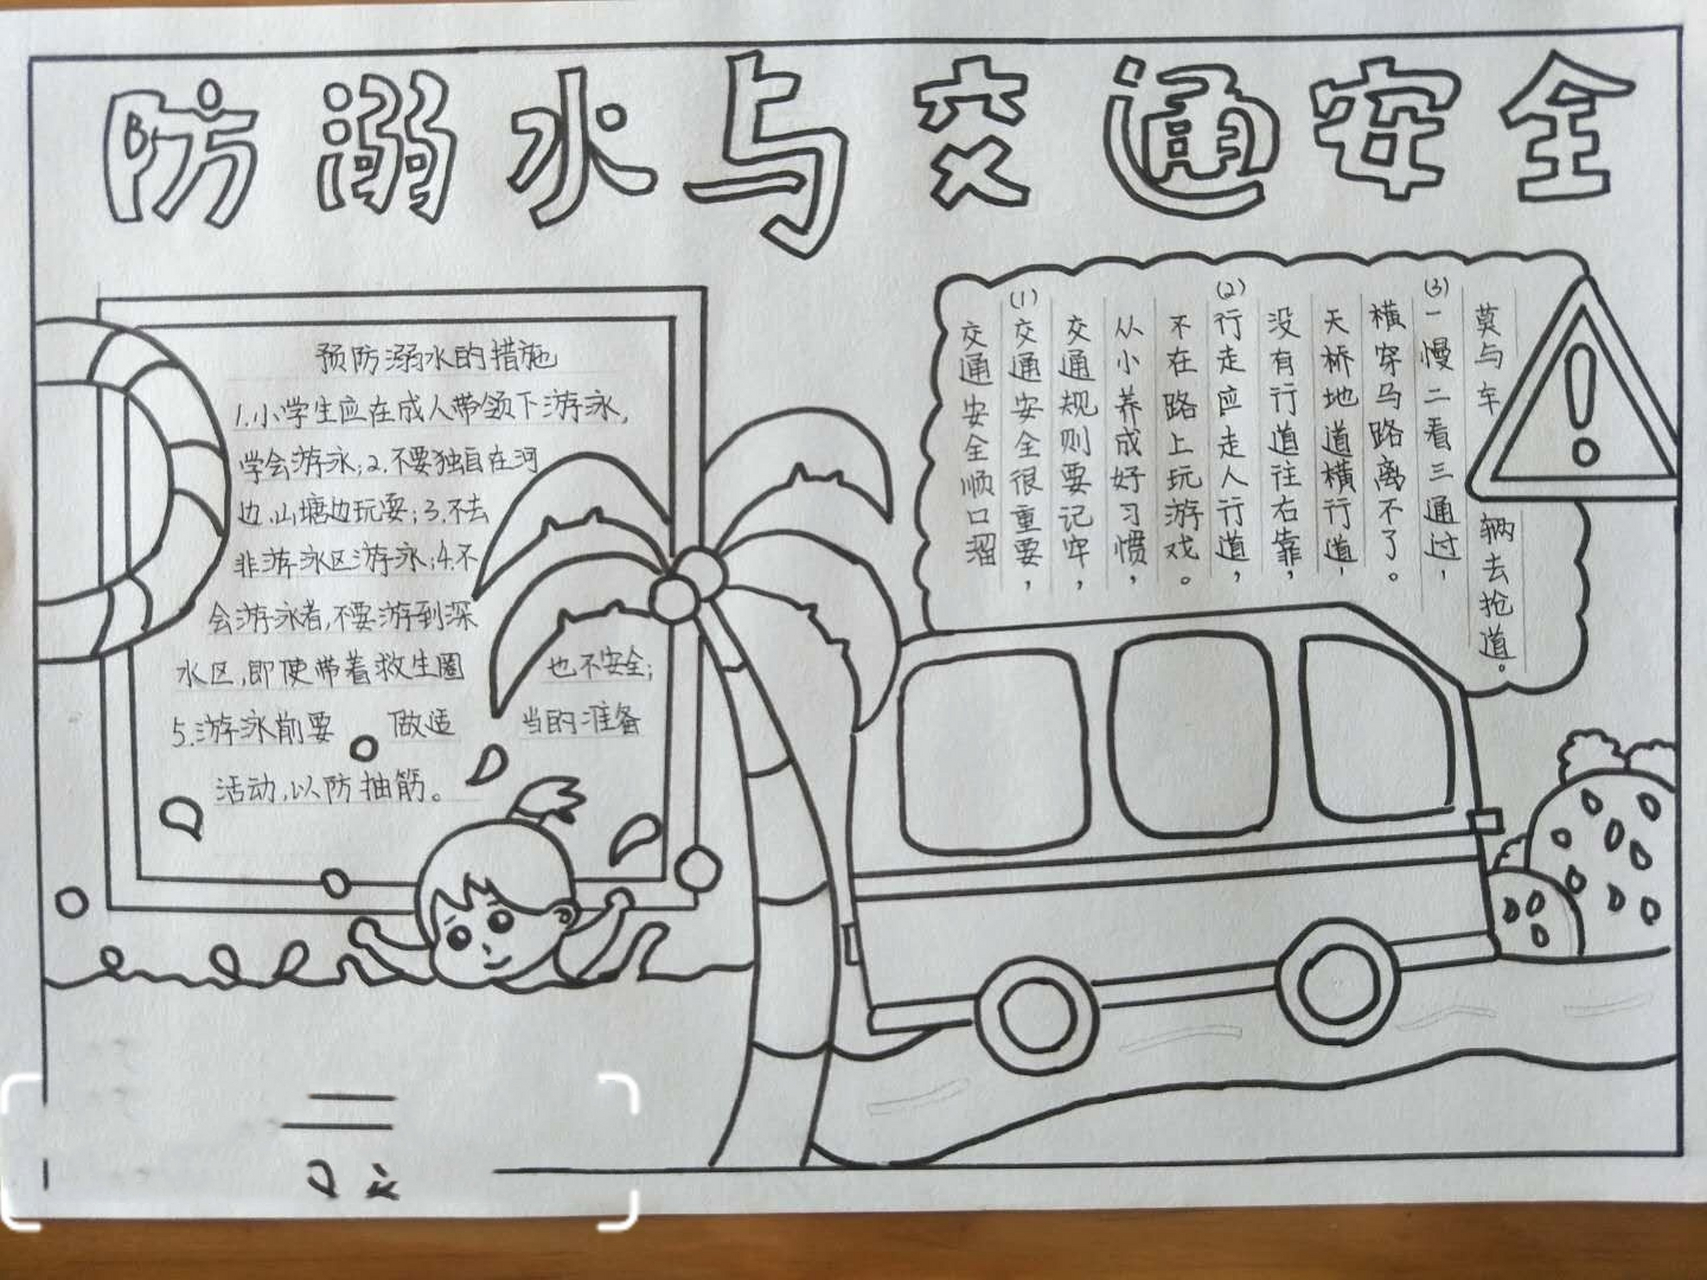 防溺水与交通安全
预防溺水的措施
1.小学生应在成人带领下游泳,
学会游泳;2.不要独自在河
边,山塘边玩耍;3.不去
非游泳区游泳;4.不
会游泳者,不要游到深
水区,即使带着救生圈 也不安全;
5.游泳前要 做适 当的准备
活动,以防抽筋。
交通安全顺口溜
(1)交通安全很重要,
交通规则要记牢,
从小养成好习惯,
不在路上玩游戏。
(2)行走应走人行道,
没有行道往右靠,
天桥地道横行道,
横穿马路离不了。
(3)一慢二看三通过,
莫与车 辆去抢道。